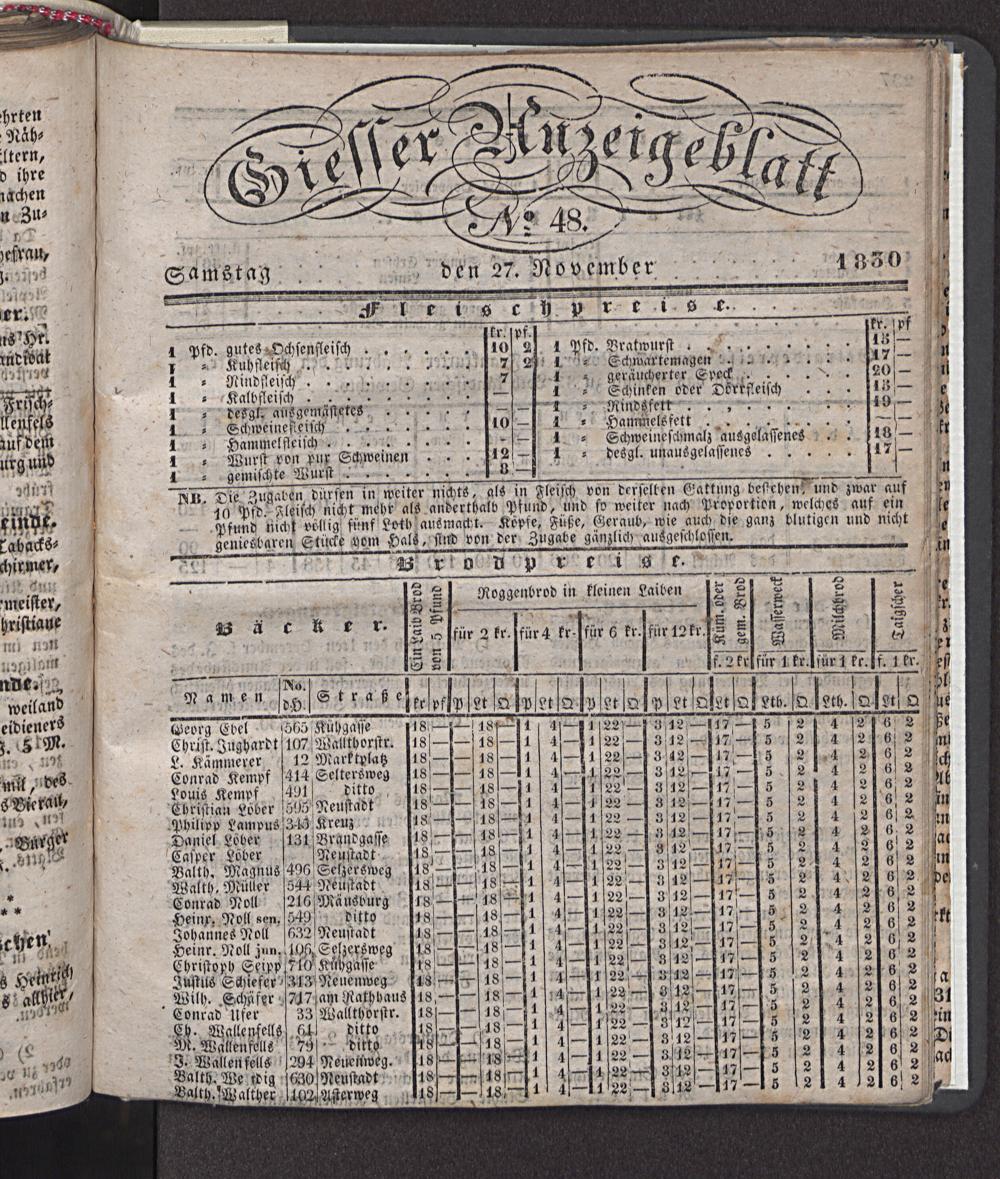 Giesser Anzeigeblatt
No. 48.
Samstag den 27. November 1830
Fleischpreise.
kr. pf. kr. pf
1 Pfd. gutes Ochsenfleisch 10 2 1 Pfd. Bratwurst 13 —
1 " Kuhfleisch 7 2 1 " Schwartemagen 17 —
1 " Rindfleisch 7 1 " geräucherter Speck 20 —
1 " Kalbfleisch — 1 " Schinken oder Dörrfleisch 13 —
1 " desgl. ausgemästetes 1 " Rindsfett 19 —
1 " Schweinefleisch 10 — 1 " Hammelsfett
1 " Hammelfleisch 1 " Schweineschmalz ausgelassenes 18 —
1 " Wurst von pur Schweinen 12 — 1 " desgl. unausgelassenes 17 —
1 " gemischte Wurst 8 —
NB. Die Zugaben dürfen in weiter nichts, als in Fleisch von derselben Gattung bestehen, und zwar auf
10 Pfd. Fleisch nicht mehr als anderthalb Pfund, und so weiter nach Proportion, welches auf ein
Pfund nicht völlig fünf Loth ausmacht. Köpfe, Füße, Geraub, wie auch die ganz blutigen und nicht
geniesbaren Stücke vom Hals, sind von der Zugabe gänzlich ausgeschlossen.
Brodpreise.
Bäcker. Ein Laib Brod von 5 Pfund Roggenbrod in kleinen Laiben Küm. oder gem. Brod Wasserweck Milchbrod Taigscher
für 2 kr. für 4 kr. für 6 kr. für 12 kr. f. 2 kr für 1 kr. für 1 kr. f. 1 kr.
Namen No. d.H. Straße kr pf P Lt Q P Lt Q P Lt Q P Lt Q Lt Q Lth. Q Lth. Q Lt Q
Georg Ebel 565 Kühgasse 18 — — 18 — 1 4 — 1 22 — 3 12 — 17 — 5 2 4 2 6 2
Christ. Jughardt 107 Wallthorstr. 18 — — 18 — 1 4 — 1 22 — 3 12 — 17 — 5 2 4 2 6 2
L. Kämmerer 12 Marktplatz 18 — — 18 — 1 4 — 1 22 — 3 12 — 17 — 5 2 4 2 6 2
Conrad Kempf 414 Seltersweg 18 — — 18 — 1 4 — 1 22 — 3 12 — 17 — 5 2 4 2 6 2
Louis Kempf 491 ditto 18 — — 18 — 1 4 — 1 22 — 3 12 — 17 — 5 2 4 2 6 2
Christian Löber 595 Neustadt 18 — — 18 — 1 4 — 1 22 — 3 12 — 17 — 5 2 4 2 6 2
Philipp Lampus 343 Kreuz 18 — — 18 — 1 4 — 1 22 — 3 12 — 17 — 5 2 4 2 6 2
Daniel Löber 131 Brandgasse 18 — — 18 — 1 4 — 1 22 — 3 12 — 17 — 5 2 4 2 6 2
Casper Löber Neustadt 18 — — 18 — 1 4 — 1 22 — 3 12 — 17 — 5 2 4 2 6 2
Balth. Magnus 496 Selzersweg 18 — — 18 — 1 4 — 1 22 — 3 12 — 17 — 5 2 4 2 6 2
Balth. Müller 544 Neustadt 18 — — 18 — 1 4 — 1 22 — 3 12 — 17 — 5 2 4 2 6 2
Conrad Noll 216 Mäusburg 18 — — 18 — 1 4 — 1 22 — 3 12 — 17 — 5 2 4 2 6 2
Heinr. Noll sen. 549 ditto 18 — — 18 — 1 4 — 1 22 — 3 12 — 17 — 5 2 4 2 6 2
Johannes Noll 632 Neustadt 18 — — 18 — 1 4 — 1 22 — 3 12 — 17 — 5 2 4 2 6 2
Heinr. Noll jun. 106 Selzersweg 18 — — 18 — 1 4 — 1 22 — 3 12 — 17 — 5 2 4 2 6 2
Christoph Seipp 710 Kühgasse 18 — — 18 — 1 4 — 1 22 — 3 12 — 17 — 5 2 4 2 6 2
Justus Schiefer 313 Neuenweg 18 — — 18 — 1 4 — 1 22 — 3 12 — 17 — 5 2 4 2 6 2
Wilh. Schäfer 717 am Rathhaus 18 — — 18 — 1 4 — 1 22 — 3 12 — 17 — 5 2 4 2 6 2
Conrad Ufer 33 Wallthorstr. 18 — — 18 — 1 4 — 1 22 — 3 12 — 17 — 5 2 4 2 6 2
Ch. Wallenfells 61 ditto 18 — — 18 — 1 4 — 1 22 — 3 12 — 17 — 5 2 4 2 6 2
M. Wallenfells 79 ditto 18 — — 18 — 1 4 — 1 22 — 3 12 — 17 — 5 2 4 2 6 2
J. Wallenfells 294 Neuenweg. 18 — — 18 — 1 4 — 1 22 — 3 12 — 17 — 5 2 4 2 6 2
Balth. 630 Neustadt 18 — — 18 — 1 4 — 1 22 — 3 12 — 17 — 5 2 4 2 6 2
Balth. Walther 102 Asterweg 18 — — 18 — 1 4 — 1 22 — 3 12 — 17 — 5 2 4 2 6 2